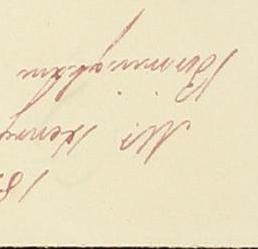 18
Mr Henry
Birmingham